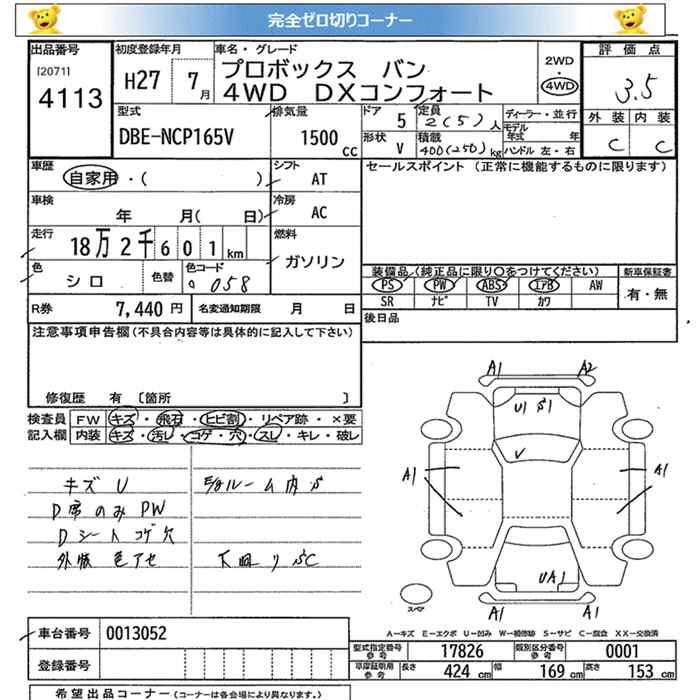 完全ゼロ切りコーナー
出品番号 初度登録年月 車名・グレード 評価点
[2071] 4113 H27 7月 プロボックス バン 2WD 3.5
4WD DXコンフォート 4WD
外装 内装
C C
型式 排気量 ドア 5 定員 2(5)人 ディーラー・並行
DBE-NCP165V 1500cc 形状 V 積載 400(250)kg モデル年式 年
ハンドル 左・右
車歴 自家用・( ) シフト AT セールスポイント (正常に機能するものに限ります)
車検 年 月( 日) 冷房 AC
走行 18万2千601km 燃料 ガソリン
色 シロ 色替 色コード 058
装備品 (純正品に限り〇をつけてください) 新車保証書
PS PW ABS エアB AW 有・無
SR ナビ TV カワ
R券 7,440円 名変通知期限 月 日 後日品
注意事項申告欄 (不具合内容等は具体的に記入して下さい)
修復歴 有 〔箇所 〕
検査員 FW キズ・飛石・ヒビ割・リペア跡・×要
記入欄 内装 キズ・汚レ・コゲ・穴・スレ・キレ・破レ
キズ U
D席のみPW
Dシートコゲ穴
外板 色アセ
ルーム内S
下回り SC
A1 A2
U1 S1
V
A1 A1
UA1
A1 A1
スペア
A−キズ E−エクボ U−凹み W−補修跡 S−サビ C−腐食 XX−交換済
車台番号 0013052
登録番号
型式指定番号 参考 17826 類別区分番号 参考 0001
車庫証明用 参考 長さ 424cm 幅 169cm 高さ 153cm
希望出品コーナー (コーナーは各会場により異なります。)